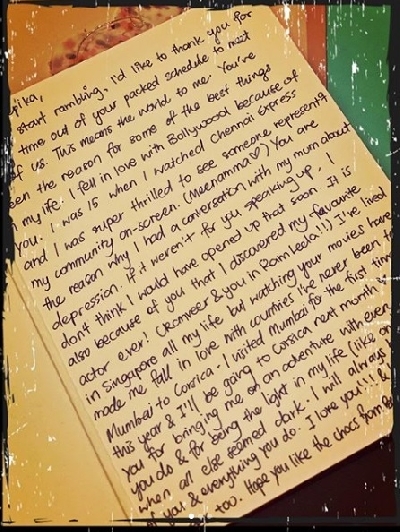 ika,
start rambling, i'd like to thank you for
time out of your packed schedule to meet
of us. This means the world to me. You've
een the reason for some of the best things
my life. I fell in love with Bollywood because of
you. I was 15 when I watched Chennai Express
and I was super thrilled to see someone represent
my community on-screen. (Meenamma♡) You are
the reason why I had a conversation with my mum about
depression. If it weren't for you speaking up, I
don't think I would have opened up that soon. It is
also because of you that I discovered my favourite
actor ever! (Ranveer & you in Ram Leela!!) I've lived
in Singapore all my life but watching your movies have
made me fall in love with countries I've never been to
Mumbai to Corsica - I visited Mumbai for the first tim
this year & I'll be going to Corsica next month
you for bringing me on an adventure with ever
you do & for being the light in my life (like
when all else seemed dark. I will always
you & everything you do. I love you!!! &
too. Hope you like the chocs from